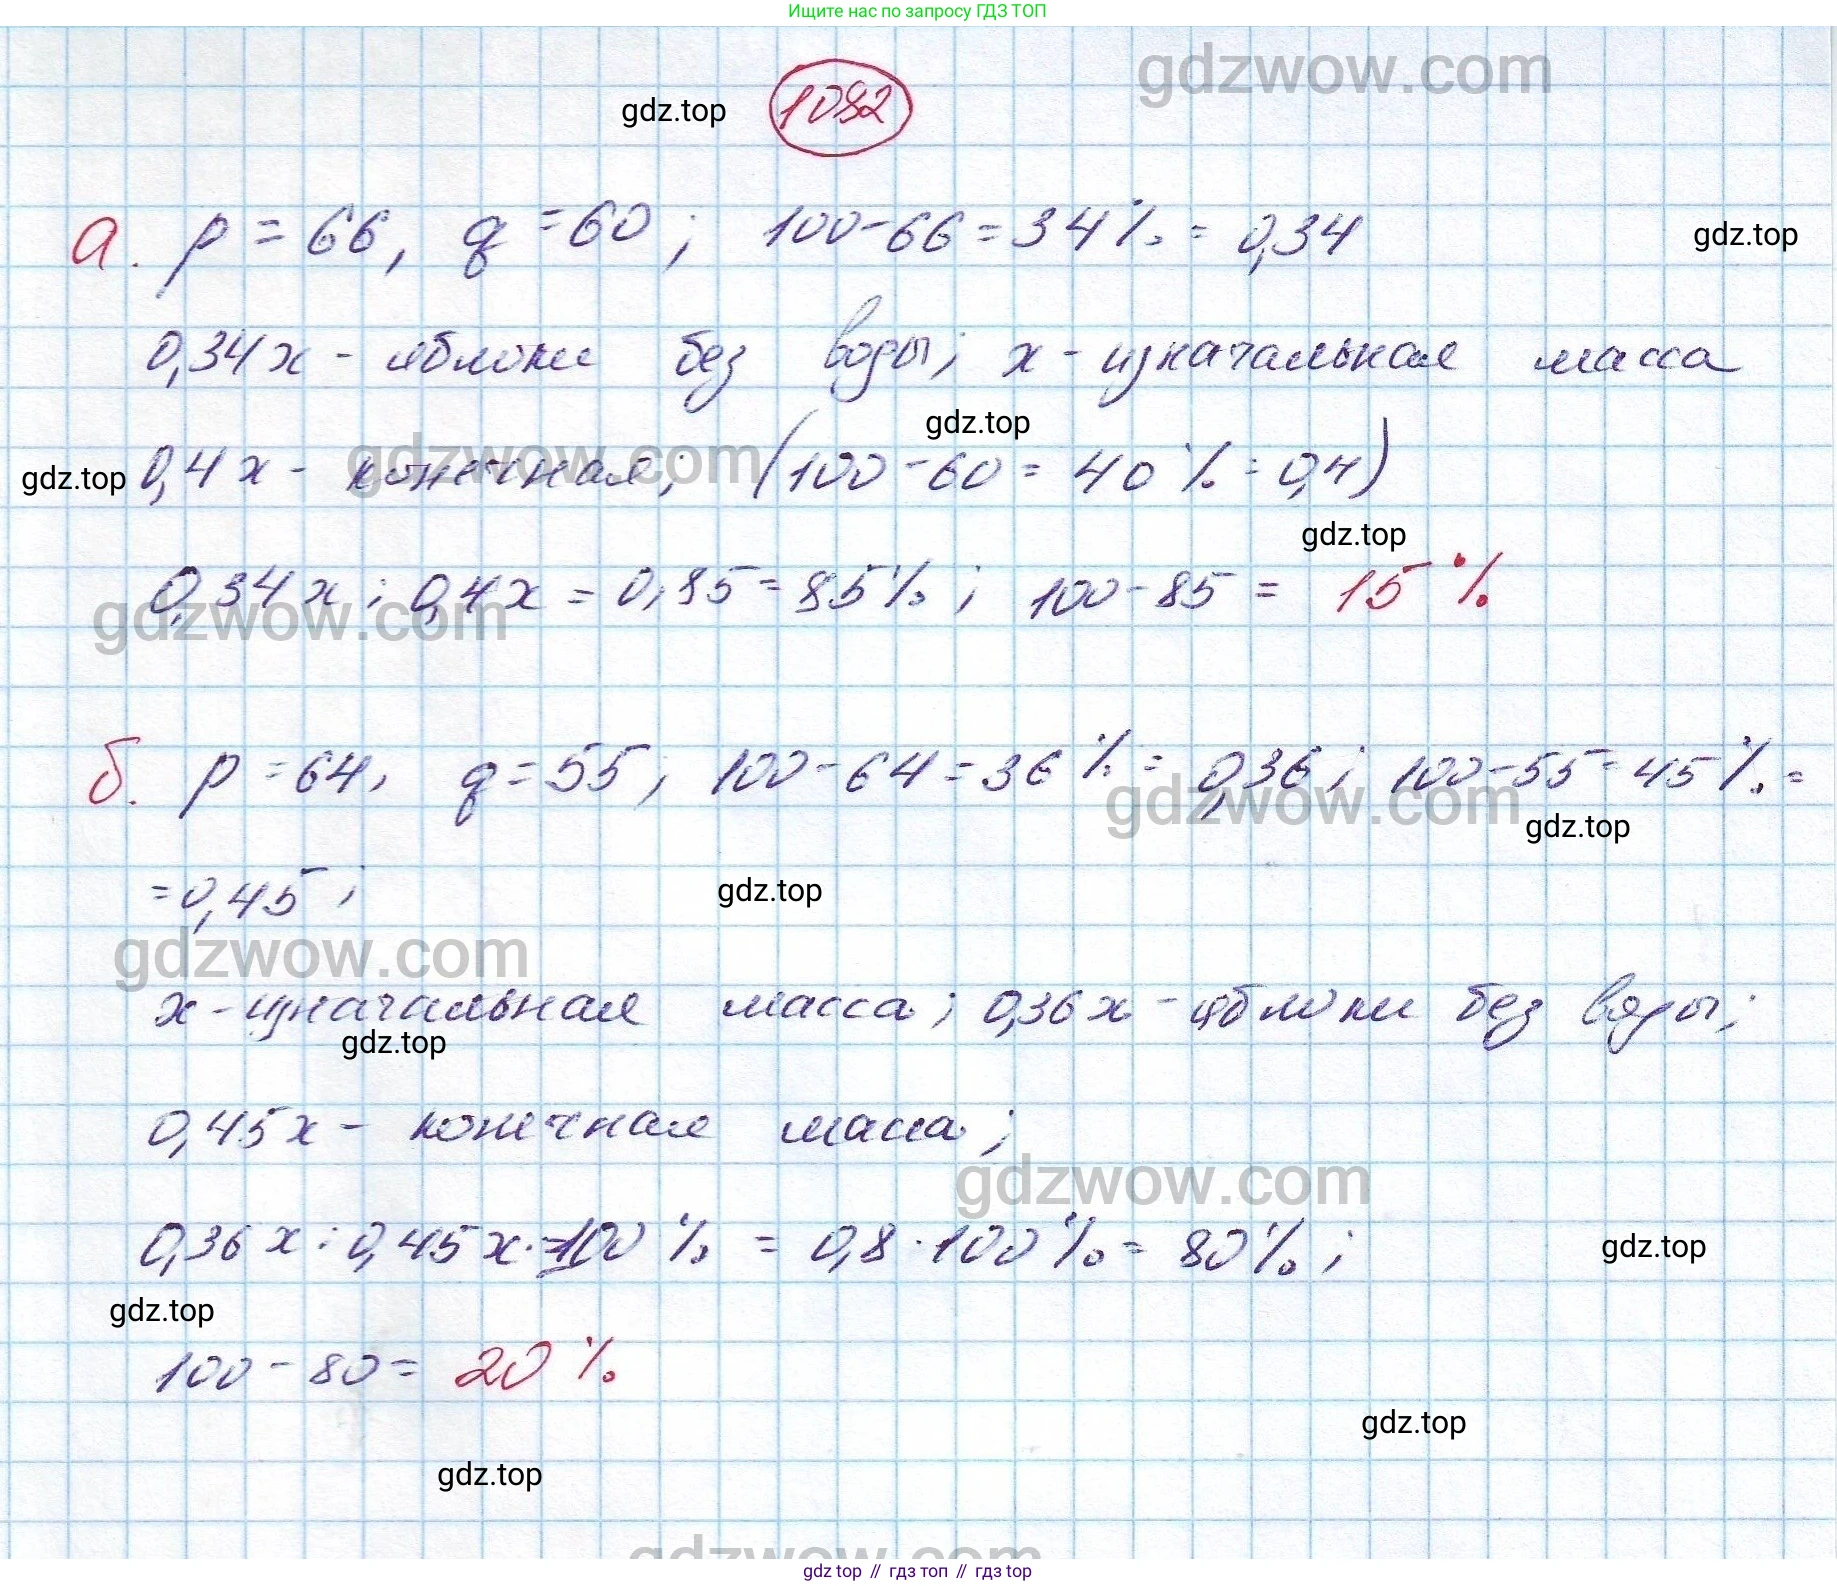 Ищите нас по запросу ГДЗ ТОП
gdzwow.com
gdz.top 1082
а. p = 66, q = 60; 100-66=34% = 0,34
gdz.top
0,34x - яблоки без воды; x - изначальная масса
gdz.top
gdz.top 0,4x - конечная; (100-60 = 40% = 0,4)
gdzwow.com
gdz.top
0,34x : 0,4x = 0,85 = 85%; 100-85 = 15%
gdzwow.com
б. p = 64, q = 55; 100-64 = 36% = 0,36; 100-55=45% =
gdzwow.com
gdz.top
= 0,45;
gdz.top
gdzwow.com
x - изначальная масса; 0,36x - яблоки без воды;
gdz.top
0,45x - конечная масса;
gdzwow.com
0,36x : 0,45x · 100% = 0,8 · 100% = 80%;
gdz.top
gdz.top
100 - 80 = 20%
gdz.top
gdz.top
gdzwow.com
gdz top // гдз топ // гдз top